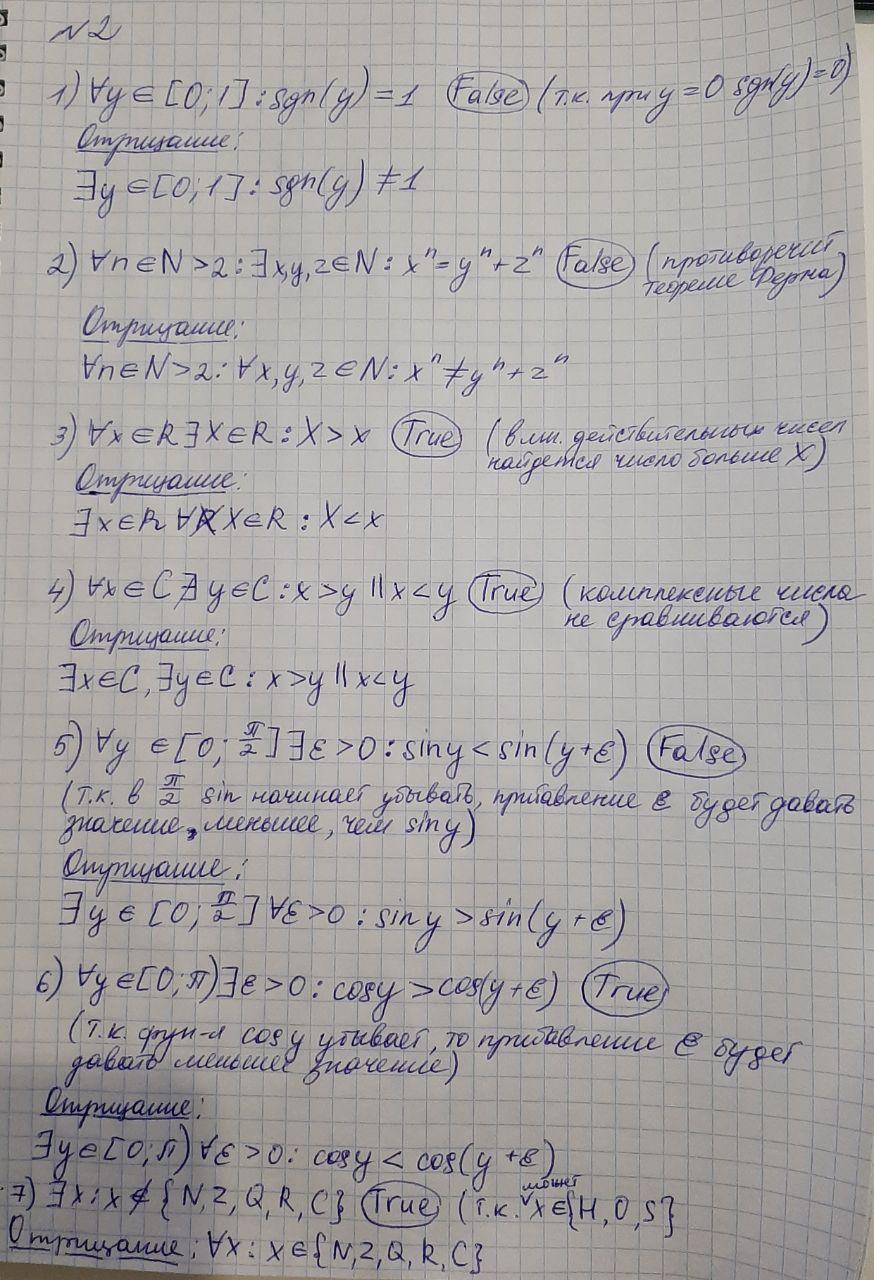 №2
1) ∀y ∈ [0; 1] : sgn(y) = 1 False (т.к. при y = 0 sgn(y) = 0)
Отрицание:
∃y ∈ [0; 1] : sgn(y) ≠ 1
2) ∀n ∈ N > 2 : ∃x,y,z ∈ N : xⁿ = yⁿ + zⁿ False (противоречит
теореме Ферма)
Отрицание:
∀n ∈ N > 2 : ∀x,y,z ∈ N : xⁿ ≠ yⁿ + zⁿ
3) ∀x ∈ R ∃X ∈ R : X > x True (в мн. действительных чисел
найдется число больше X)
Отрицание:
∃x ∈ R ∀X ∈ R : X < x
4) ∀x ∈ C ∄ y ∈ C : x > y || x < y True (комплексные числа
не сравниваются)
Отрицание:
∃x ∈ C, ∃y ∈ C : x > y || x < y
5) ∀y ∈ [0; π/2] ∃ε > 0 : sin y < sin(y + ε) False
(т.к. в π/2 sin начинает убывать, прибавление ε будет давать
значение, меньшее, чем sin y)
Отрицание:
∃y ∈ [0; π/2] ∀ε > 0 : sin y > sin(y + ε)
6) ∀y ∈ [0; π) ∃ε > 0 : cos y > cos(y + ε) True
(т.к. фун-я cos y убывает, то прибавление ε будет
давать меньшее значение)
Отрицание:
∃y ∈ [0; π) ∀ε > 0 : cos y < cos(y + ε)
7) ∃x : x ∉ {N, Z, Q, R, C} True (т.к. может x ∈ {H, O, S}
Отрицание: ∀x : x ∈ {N, Z, Q, R, C}